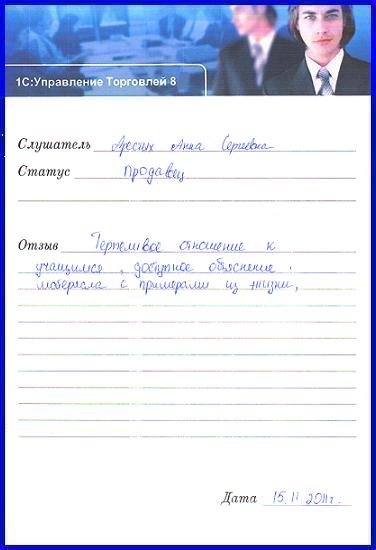 1С:Управление Торговлей 8
Слушатель Арестых Анна Сергеевна
Статус продавец
Отзыв Терпеливое отношение к
учащимся, доступное объяснение
материала с примерами из жизни,
Дата 15.11.2011г.